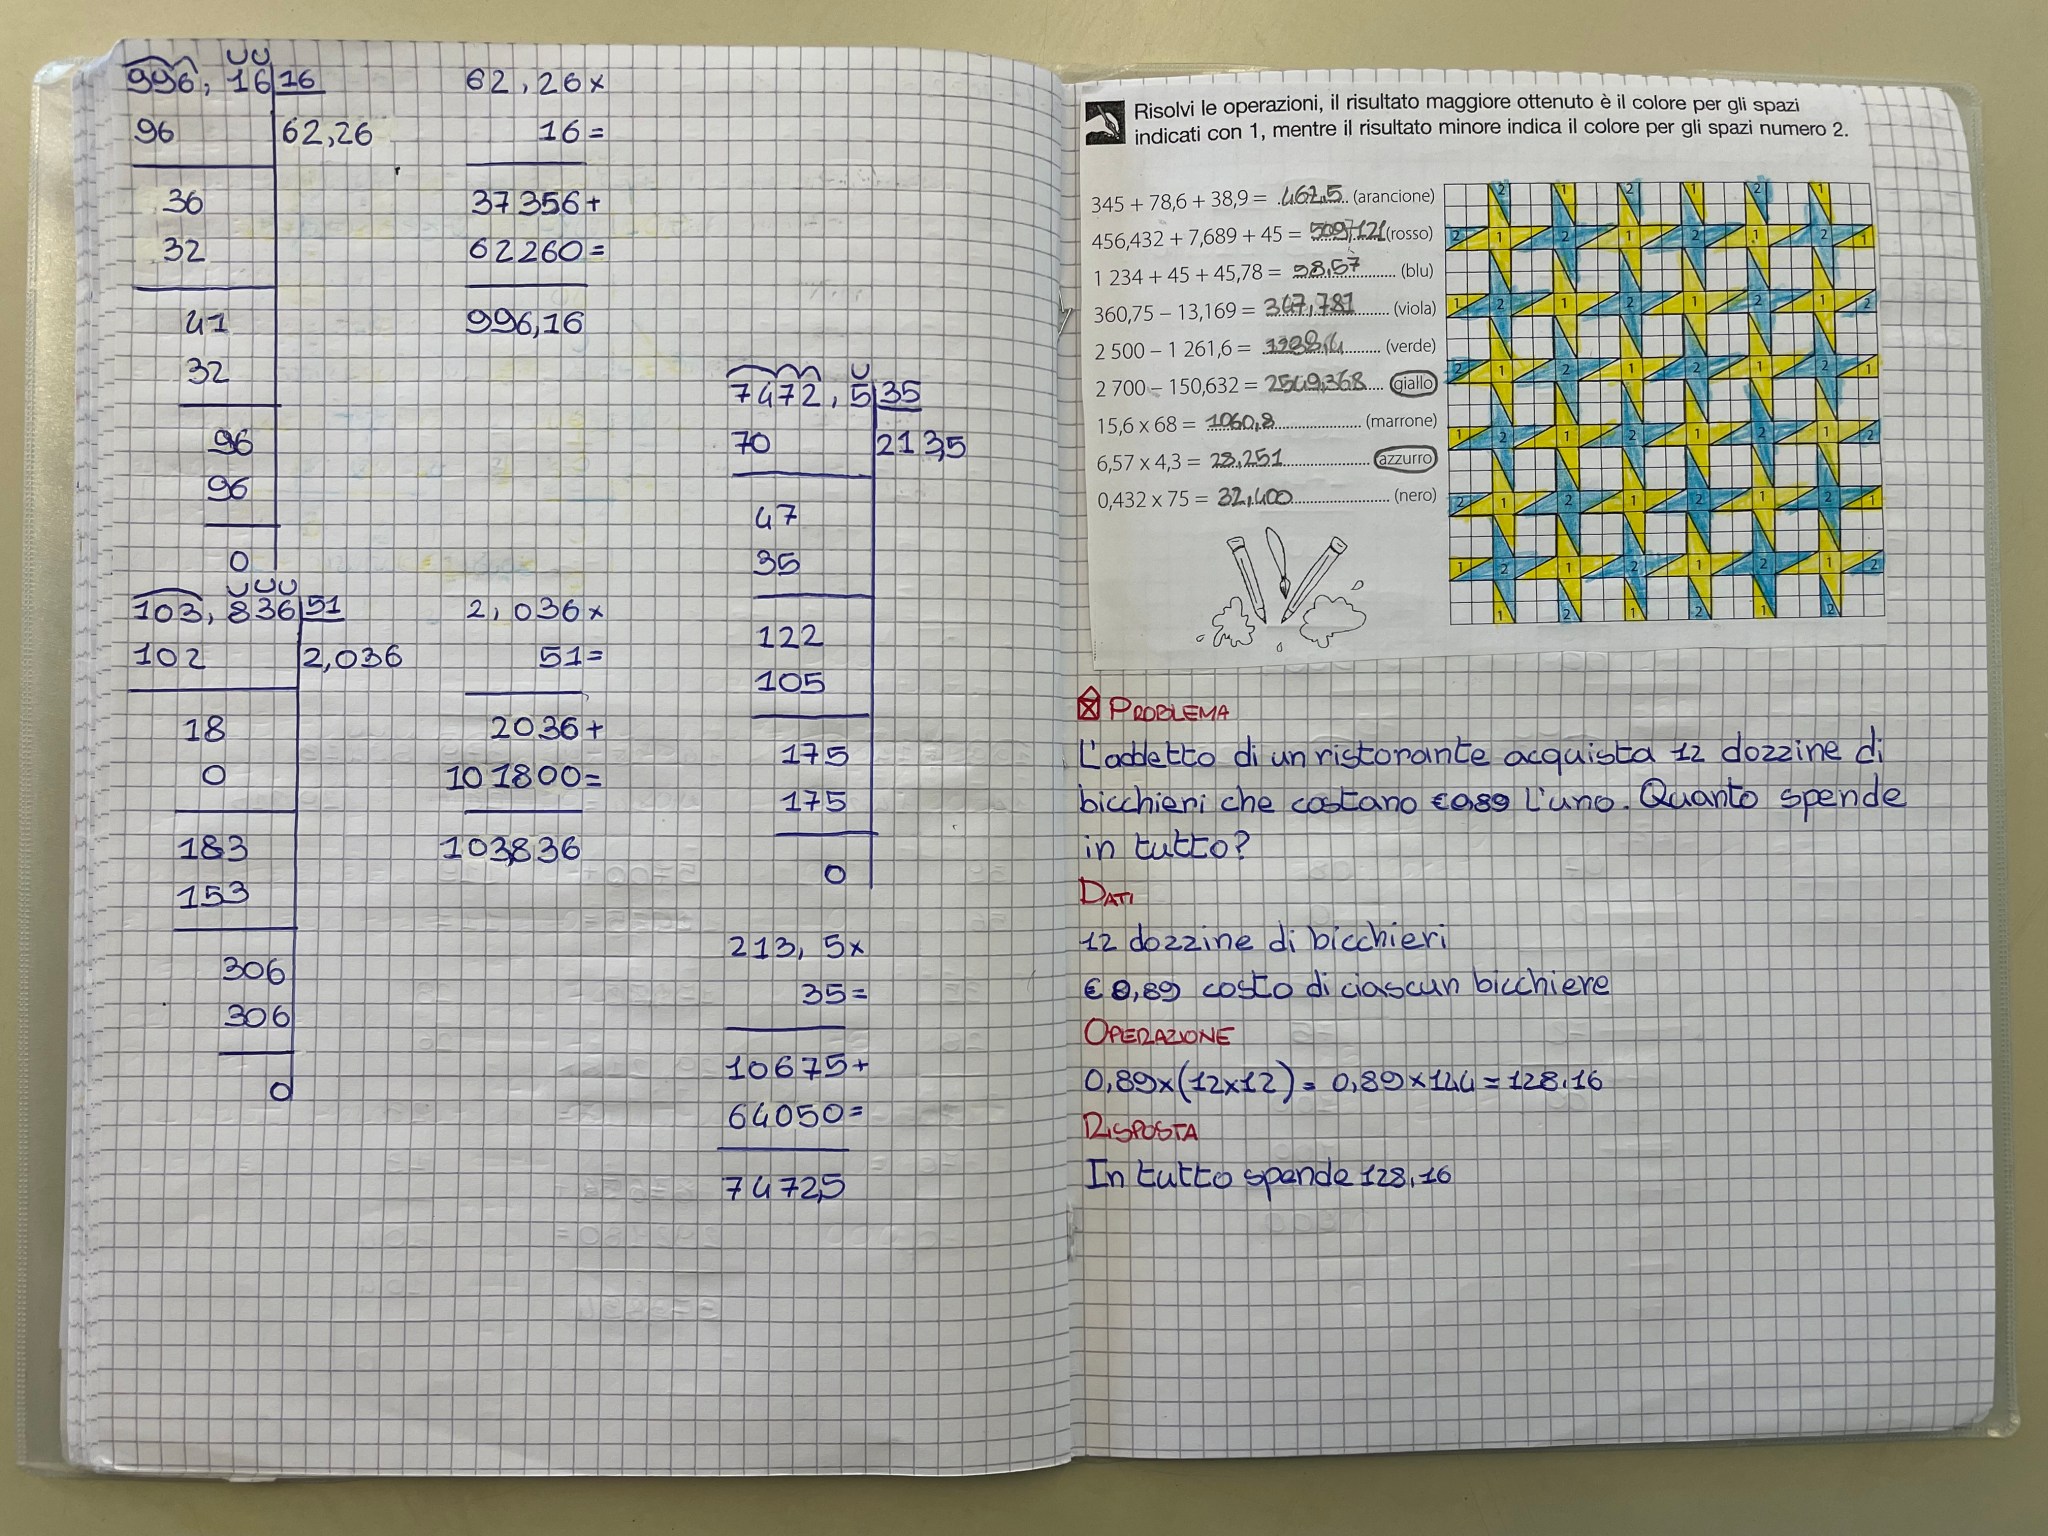 996,16 16
96 62,26
36
32
41
32
96
96
0
62,26x
16=
37356+
62260=
996,16
103,836 51
102 2,036
18
0
183
153
306
306
0
2,036x
51=
2036+
101800=
103,836
7472,5 35
70 213,5
47
35
122
105
175
175
0
213,5x
35=
10675+
64050=
7472,5
Risolvi le operazioni, il risultato maggiore ottenuto è il colore per gli spazi
indicati con 1, mentre il risultato minore indica il colore per gli spazi numero 2.
345 + 78,6 + 38,9 = 462,5 (arancione)
456,432 + 7,689 + 45 = 509,121 (rosso)
1 234 + 45 + 45,78 = 98,57 (blu)
360,75 – 13,169 = 347,781 (viola)
2 500 – 1 261,6 = (verde)
2 700 – 150,632 = 2549,368 giallo
15,6 x 68 = 1060,8 (marrone)
6,57 x 4,3 = 28,251 azzurro
0,432 x 75 = 32,400 (nero)
2 1 2 1 2 1
2 1 2 1 2 1 2 1
1 2 1 2 1 2 1 2
2 1 2 1 2 1 2 1
1 2 1 2 1 2 1 2
2 1 2 1 2 1 2 1
1 2 1 2 1 2 1 2
1 2 1 2 1 2
PROBLEMA
L'addetto di un ristorante acquista 12 dozzine di
bicchieri che costano €0,89 l'uno. Quanto spende
in tutto?
DATI
12 dozzine di bicchieri
€ 0,89 costo di ciascun bicchiere
OPERAZIONE
0,89x(12x12)= 0,89x144=128,16
RISPOSTA
In tutto spende 128,16